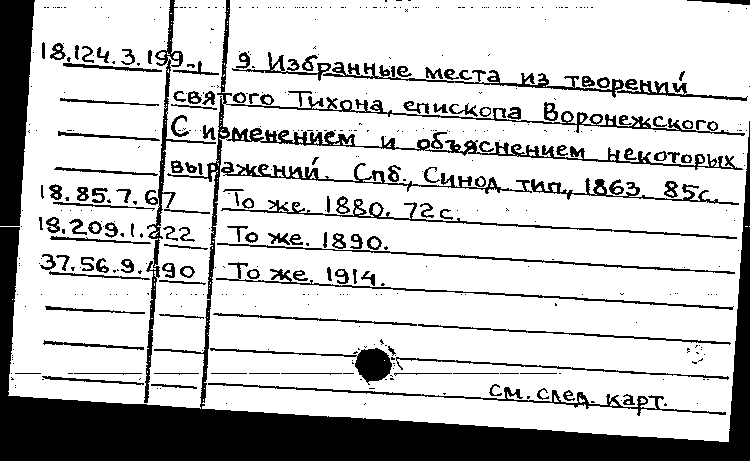 18.124.3.199-1 9. Избранные места из творений
святого Тихона, епископа Воронежского.
С изменением и объяснением некоторых
выражений. Спб., Синод. тип., 1863. 85с.
18.85.7.67 То же. 1880. 72с.
18.209.1.222 То же. 1890.
37.56.9.490 То же. 1914.
см. след. карт.